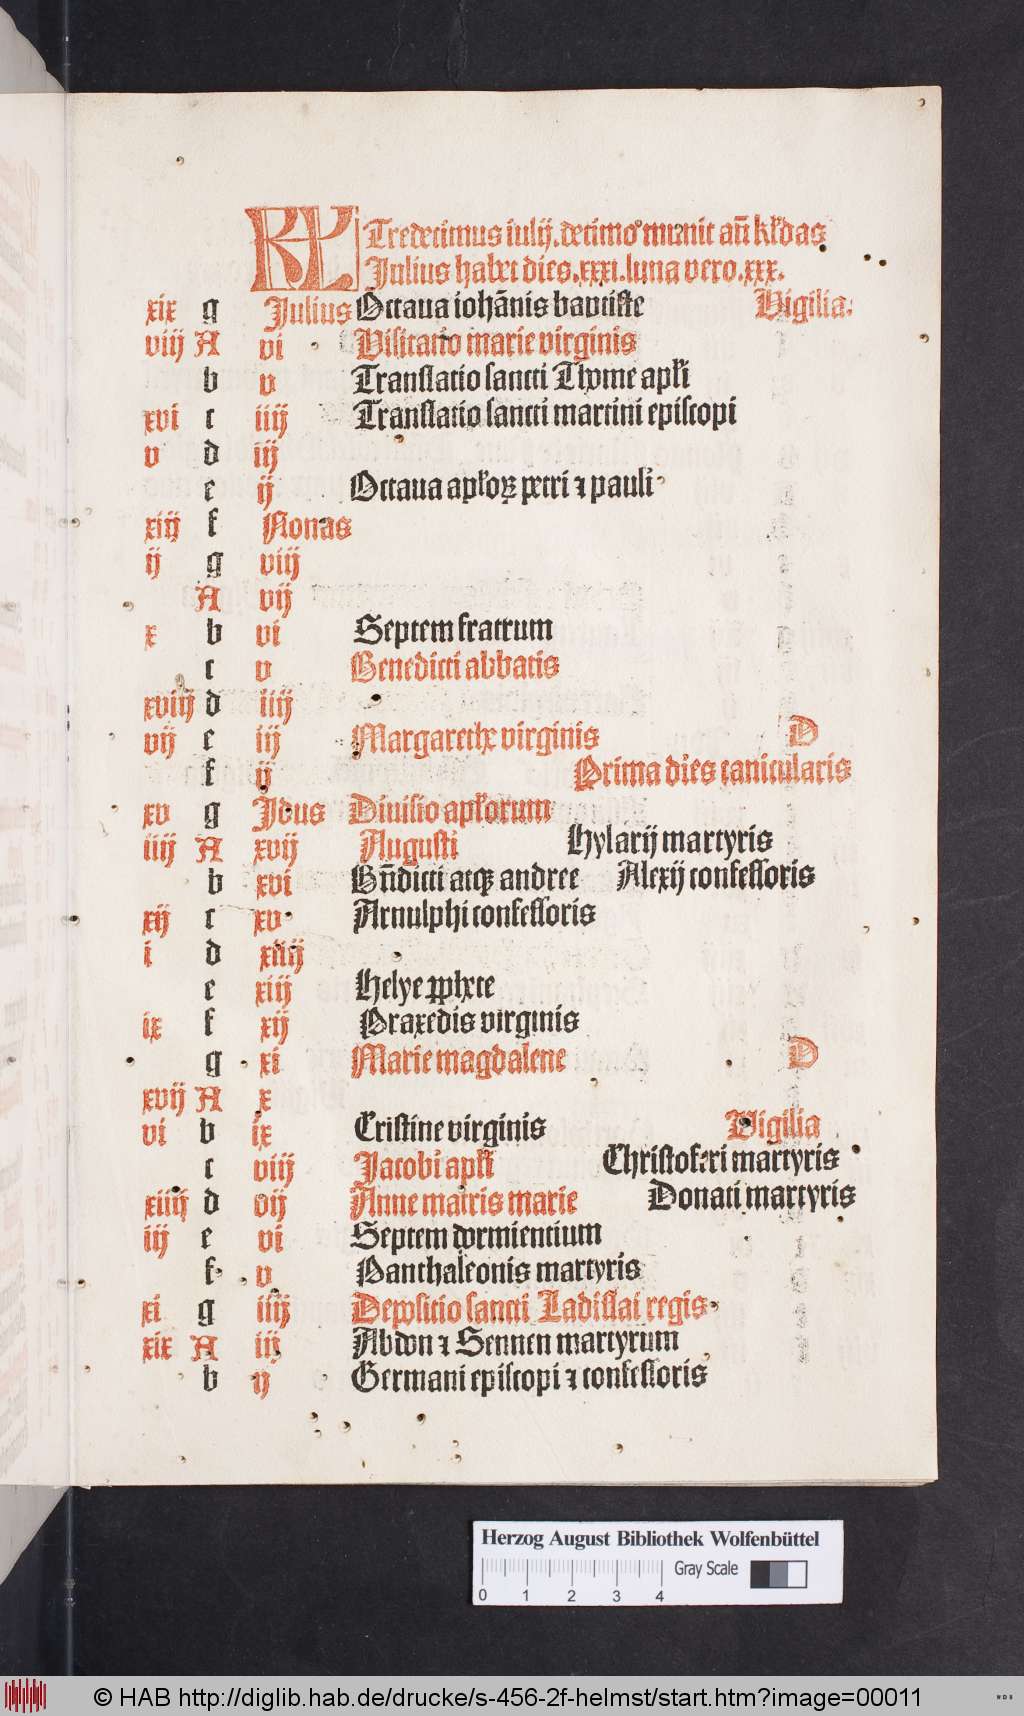 KL Tredecimus iulij. decimo munit an̄ kl'das
Julius habet dies .xxxi. luna vero .xxx.
xix g Julius Octaua ioh̄anis baptiste Vigilia.
viij A vi Visitatio marie virginis
b v Translatio sancti Thome apl'i
xvi c iiij Translatio sancti martini episcopi
v d iij
e ij Octaua apl'oꝝ petri ⁊ pauli
xiij f Nonas
ij g viij
A vij
x b vi Septem fratrum
c v Benedicti abbatis
xviij d iiij
vij e iij Margarethe virginis D
f ij Prima dies canicularis
xv g Jdus Diuisio apl'orum
iiij A xvij Augusti Hylarij martyris
b xvi Bn̄dicti atqꝫ andree Alexij confessoris
xij c xv Arnulphi confessoris
i d xiiij
e xiij Helye ꝓphete
ix f xij Praxedis virginis
g xi Marie magdalene D
xvij A x
vi b ix Cristine virginis Vigilia
c viij Jacobi apl'i Christoferi martyris
xiiij d vij Anne matris marie Donati martyris
iij e vi Septem dormientium
f v Panthaleonis martyris
xi g iiij Depositio sancti Ladislai regis
xix A iij Abdon ⁊ Sennen martyrum
b ij Germani episcopi ⁊ confessoris
Herzog August Bibliothek Wolfenbüttel
Gray Scale
0 1 2 3 4
© HAB http://diglib.hab.de/drucke/s-456-2f-helmst/start.htm?image=00011